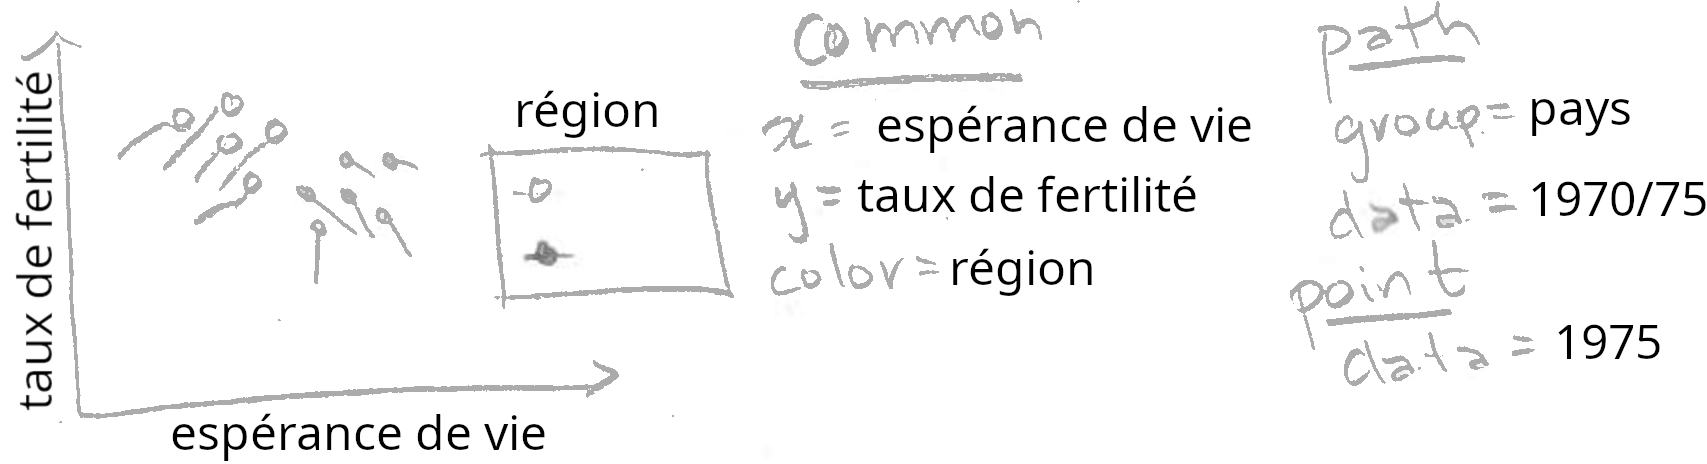 taux de fertilité
espérance de vie
région
common
x = espérance de vie
y = taux de fertilité
color = région
path
group = pays
data = 1970/75
point
data = 1975